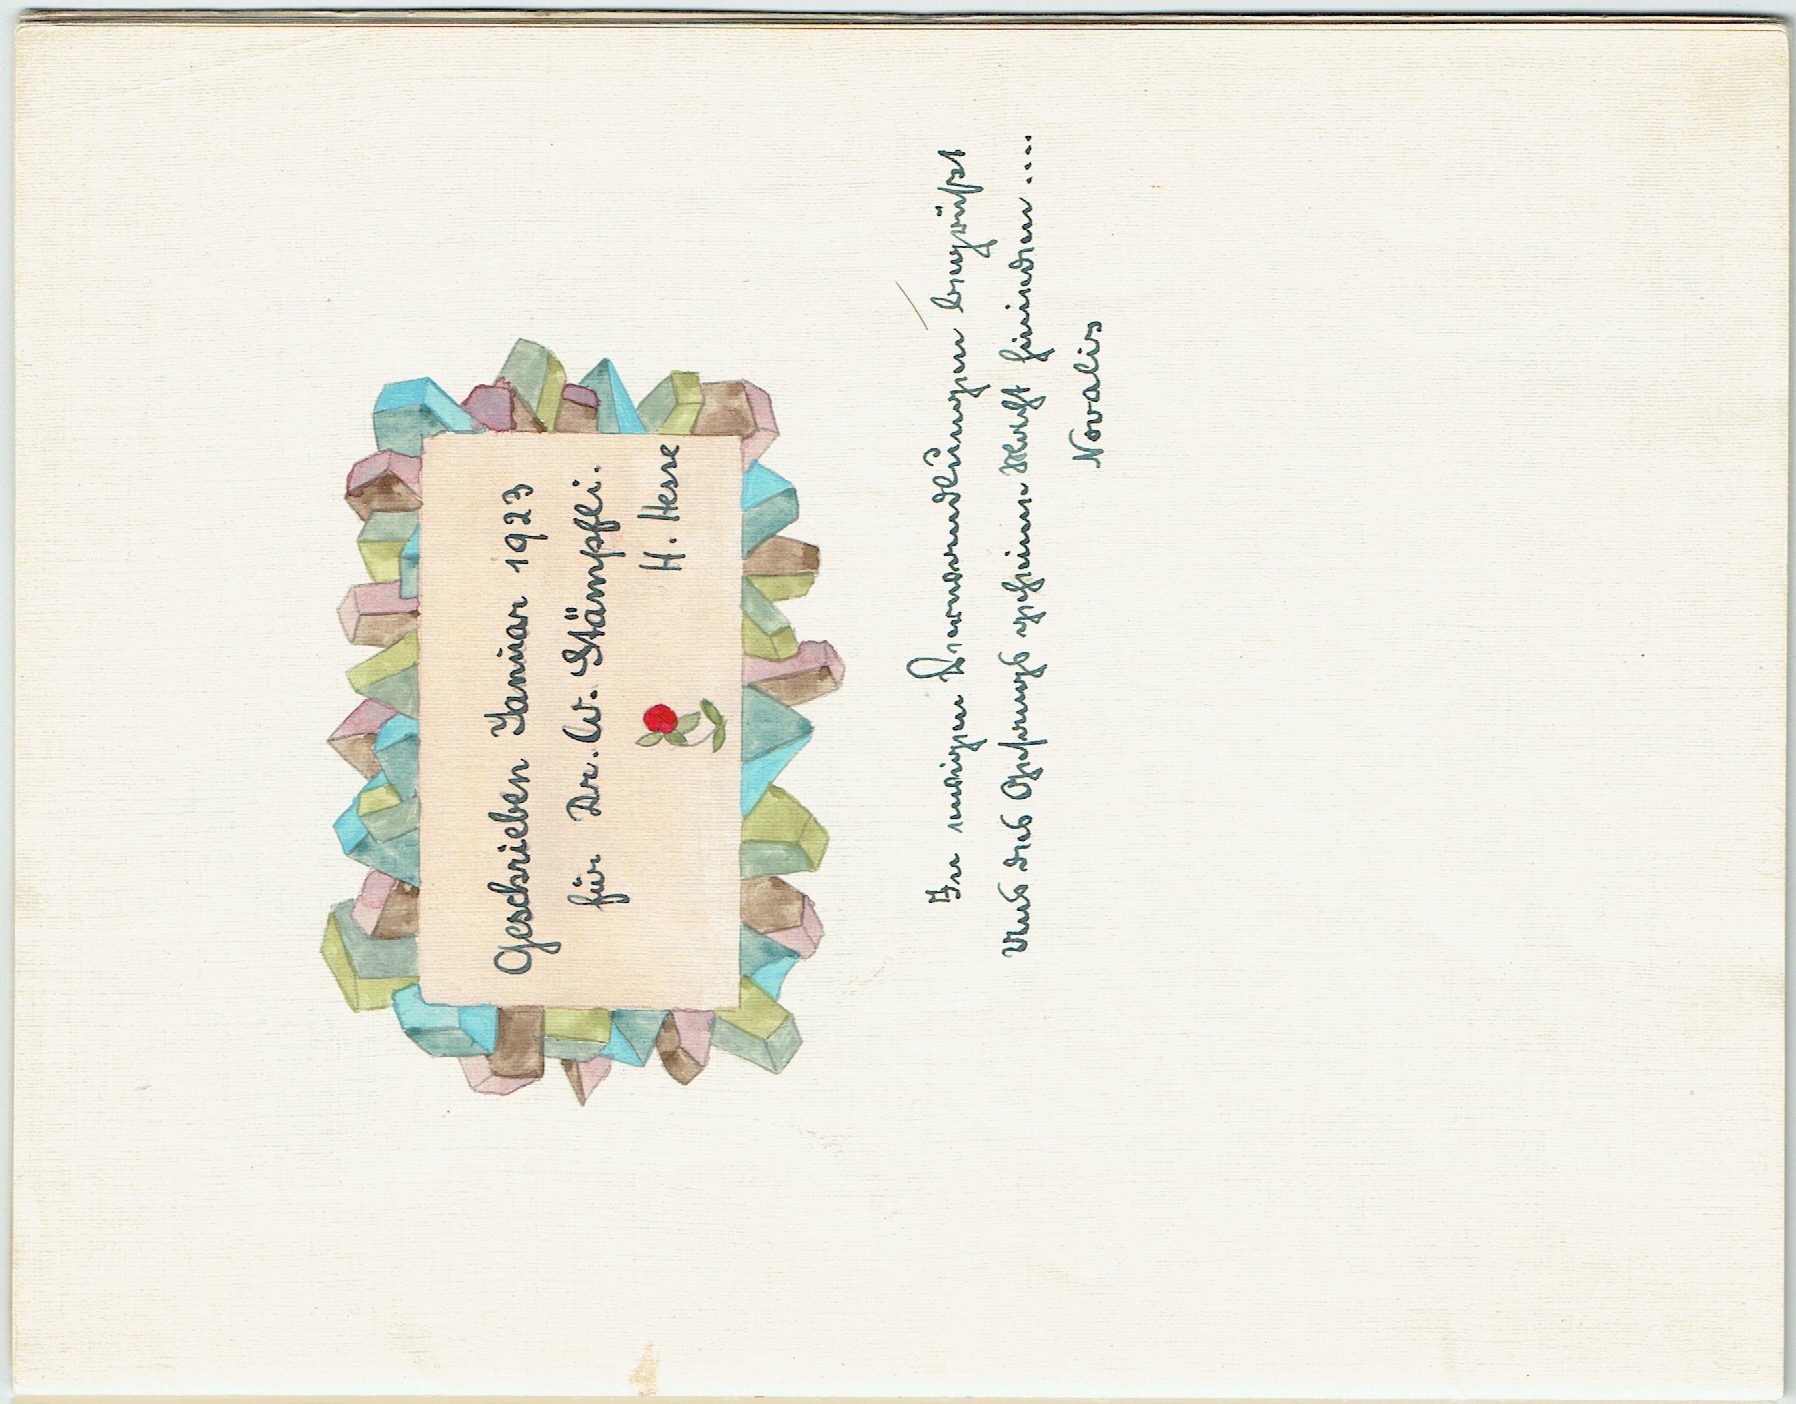 Geschrieben Januar 1923
für Dr. W. Stämpfli.
H. Hesse
In ewigen Verwandlungen begrüßt
Uns des Gesangs geheime Macht hienieden ....
Novalis